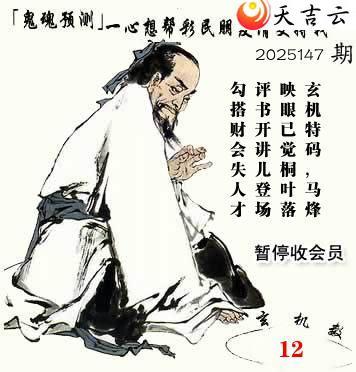 天吉云
「鬼魂预测」一心想帮彩民朋友
2025147 期
玄机特码，马烽
映眼已觉桐叶落
评书开讲儿登场
勾搭财会失人才
暂停收会员
玄机
12